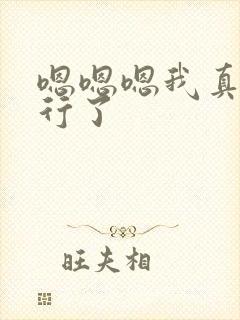 嗯嗯嗯我真
行了
旺夫相